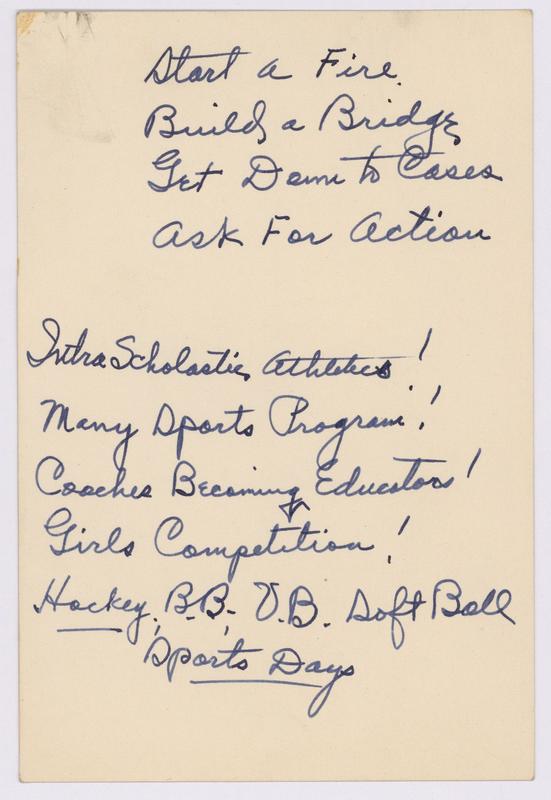 Start a Fire
Build a Bridge
Get Down to Cases
Ask For Action
Intra Scholastic Athletics!
Many Sports Program!
Coaches Becoming Educators!
Girls Competition!
Hockey, B.B., V.B. Soft Ball
Sports Days